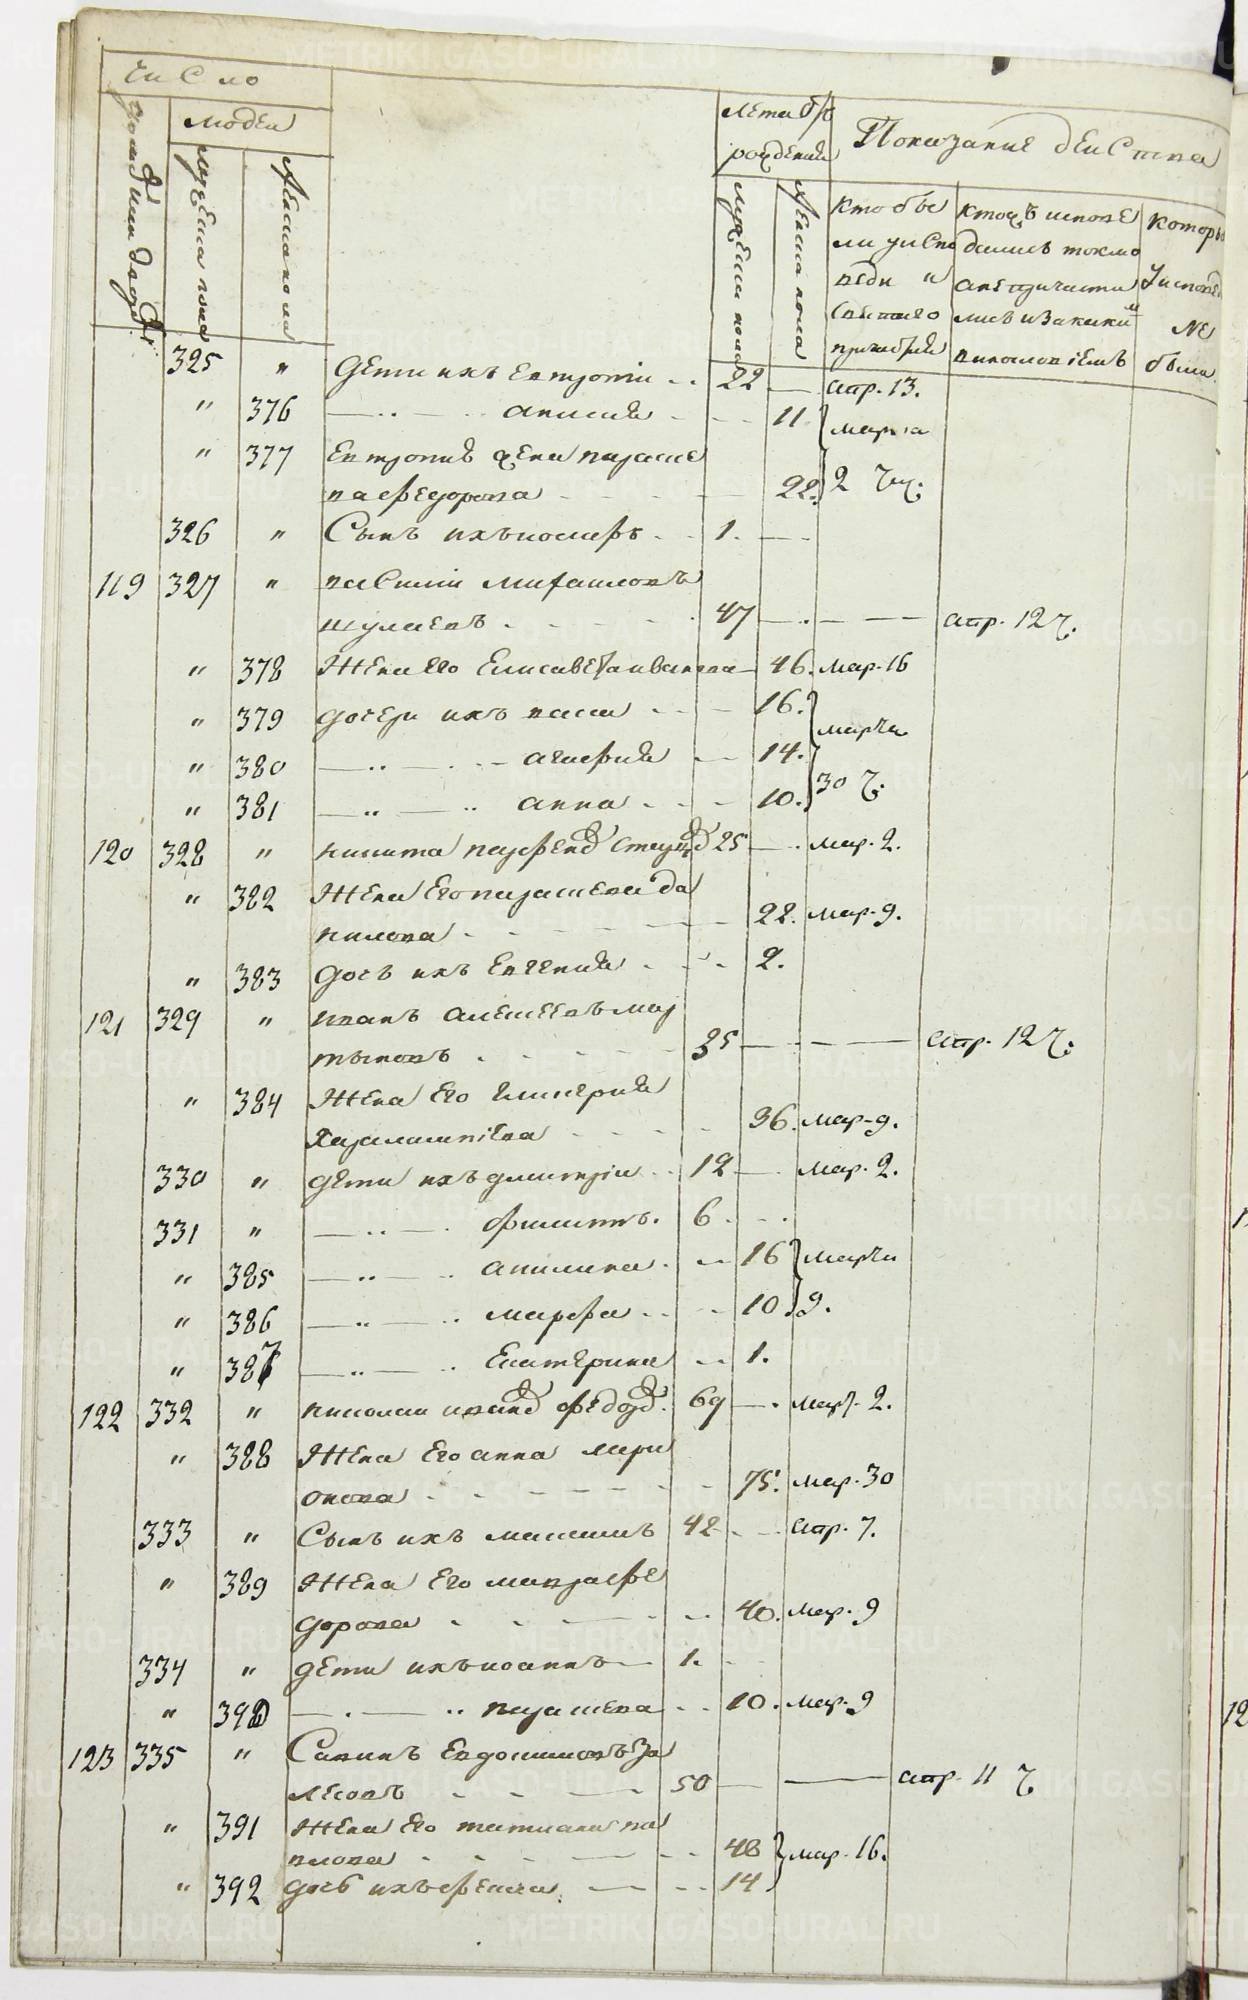 Число
Людеи
Домы или дворы
Мужеска пола
Женска пола
Лета от рождения
Мужеска пола
Женска пола
Показание деиства
кто бы
ли у испо
веди и
святаго
причастия
ктож испове
дались токмо
а не причасти
лись и за каким
винословiемъ
которы
у испове
не
были
325 " Дети ихъ Евтропiи - - 22 — апр. 13.
" 376 —"— " анисия - - - 11. марта
" 377 Евтропия жена параске
ва федорова - - - - 22. 2 чи:
326 " Сынъ ихъ - - 1. — -
119 327 " василiи михаиловъ
шулаевъ - - - - 47 — - — апр. 12 ч.
" 378 Жена его Елисавета иванова — 46. мар. 16
" 379 Дочери ихъ васса - - - 16. марта
" 380 —"— - - агафия - - 14.
" 381 —"— " анна - - - 10. 30 ч:
120 328 " никита парфенов 25 — - мар. 2.
" 382 Жена Его параскева да
нилова - - - - 22. мар. 9.
" 383 Дочь ихъ Евгения - - - 2.
121 329 " иванъ алексеевъ мар
тыновъ - - - - 35 — - — апр. 12 ч:
" 384 Жена Его гликерия
Харлампiева - - - - 36. мар. 9.
330 " Дети ихъ дмитрiи - - 12 — - мар. 2.
331 " —"— - филипъ. 6 - - -
" 385 —"— " акилина - - 16 марта
" 386 —"— " марфа - - - 10. 9.
" 387 —"— " Екатерина - - 1.
122 332 " николаи иванов федоров. 69 — - мар. 2.
" 388 Жена Его анна лари
онова - - - - 75. мар. 30
333 " Сынъ ихъ максимъ 42 - - апр. 7.
" 389 Жена Его мавра фе
дорова - - - - 40. мар. 9
334 " Дети ихъ иоаннъ — 1. - -
" 390 — - — " параскева - - 10. мар. 9
123 335 " Савинъ Евдокимовъ за
лесовъ - - - 50 — — апр. 11 ч
" 391 Жена Его татиана па
влова - - - - 48 мар. 16.
" 392 Дочь ихъ фекла. — - - 14
METRIKI.GASO-URAL.RU